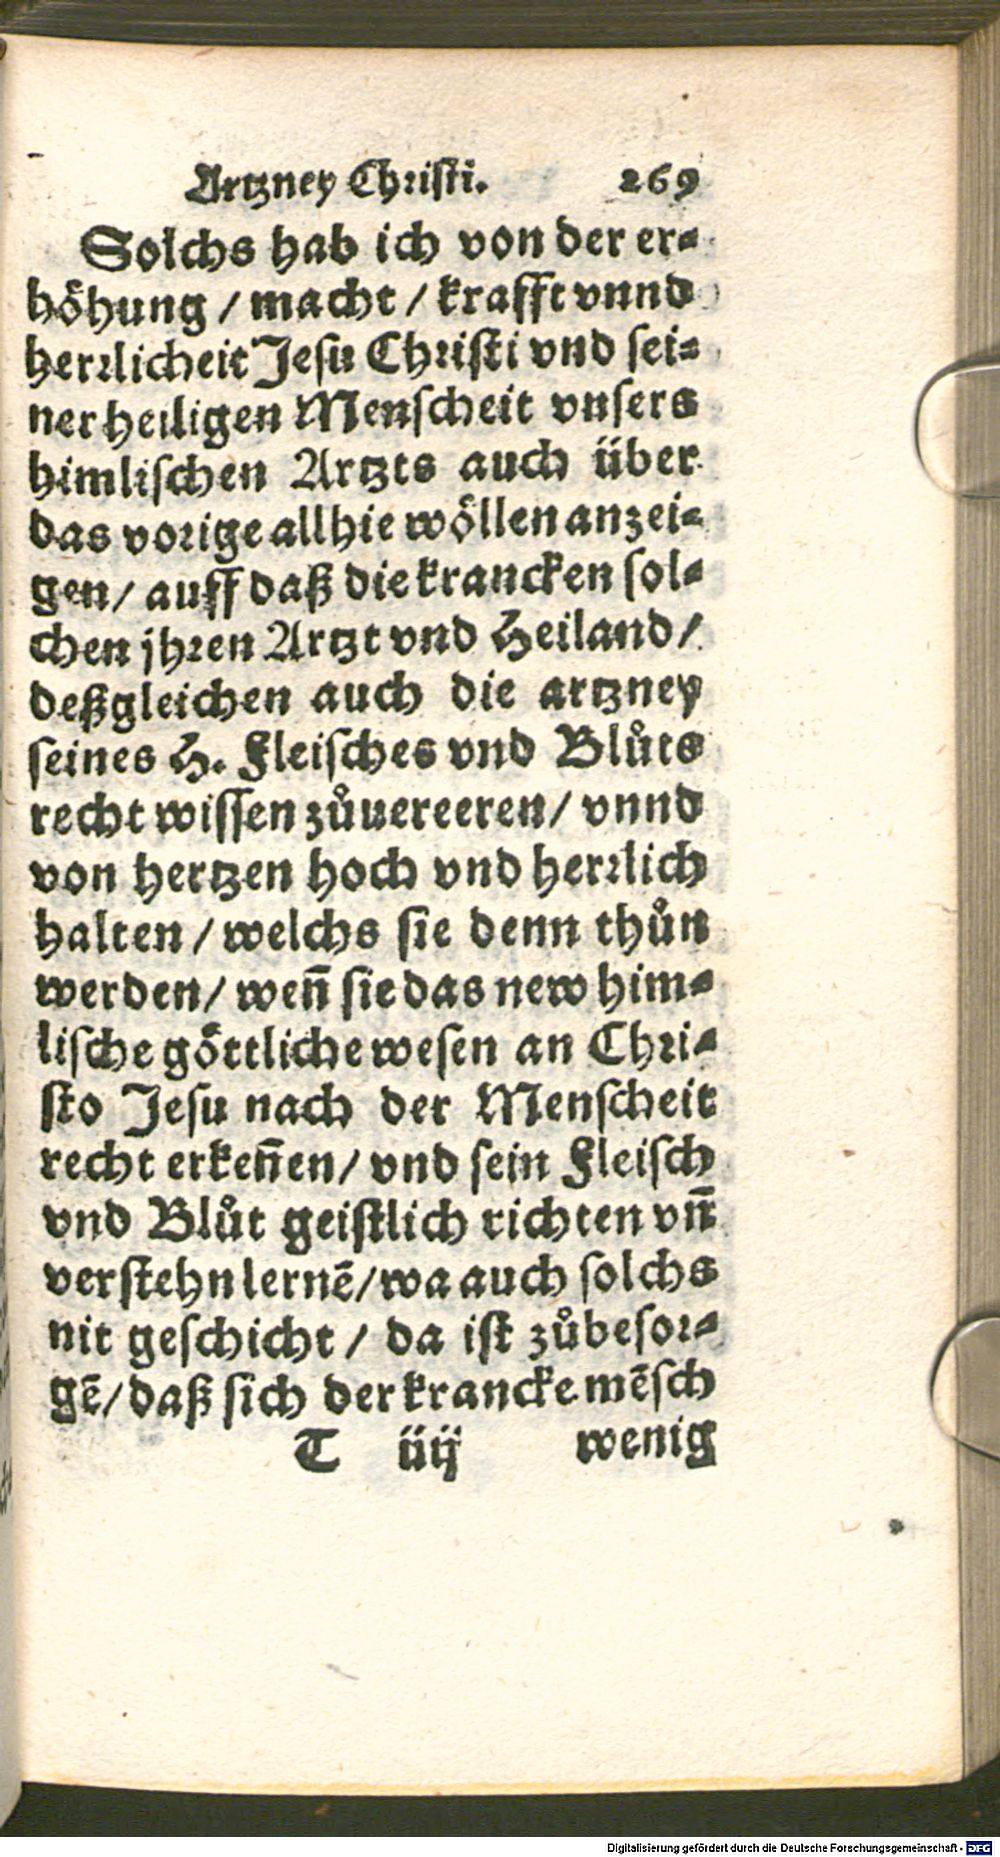 Artzney Christi. 269
Solchs hab ich von der er⸗
höhung / macht / krafft vnnd
herꝛlicheit Jesu Chꝛiſti vnd ſei⸗
ner heiligen Menſcheit vnſers
himliſchen Artzts auch über
das voꝛige allhie wöllen anzei⸗
gen / auff daß die krancken ſol⸗
chen jhꝛen Artzt vnd Heiland /
deßgleichen auch die artzney
ſeines H. Fleiſches vnd Blůts
recht wiſſen zůuereeren / vnnd
von hertzen hoch vnd herꝛlich
halten / welchs ſie denn thůn
werden / wen̄ ſie das new him⸗
liſche göttliche weſen an Chꝛi⸗
ſto Jeſu nach der Menſcheit
recht erken̄en / vnd ſein Fleiſch
vnd Blůt geiſtlich richten vn̄
verſtehn lernē / wa auch ſolchs
nit geſchicht / da iſt zůbeſoꝛ⸗
gē / daß ſich der krancke mēſch
T iiij wenig
Digitalisierung gefördert durch die Deutsche Forschungsgemeinschaft - DFG